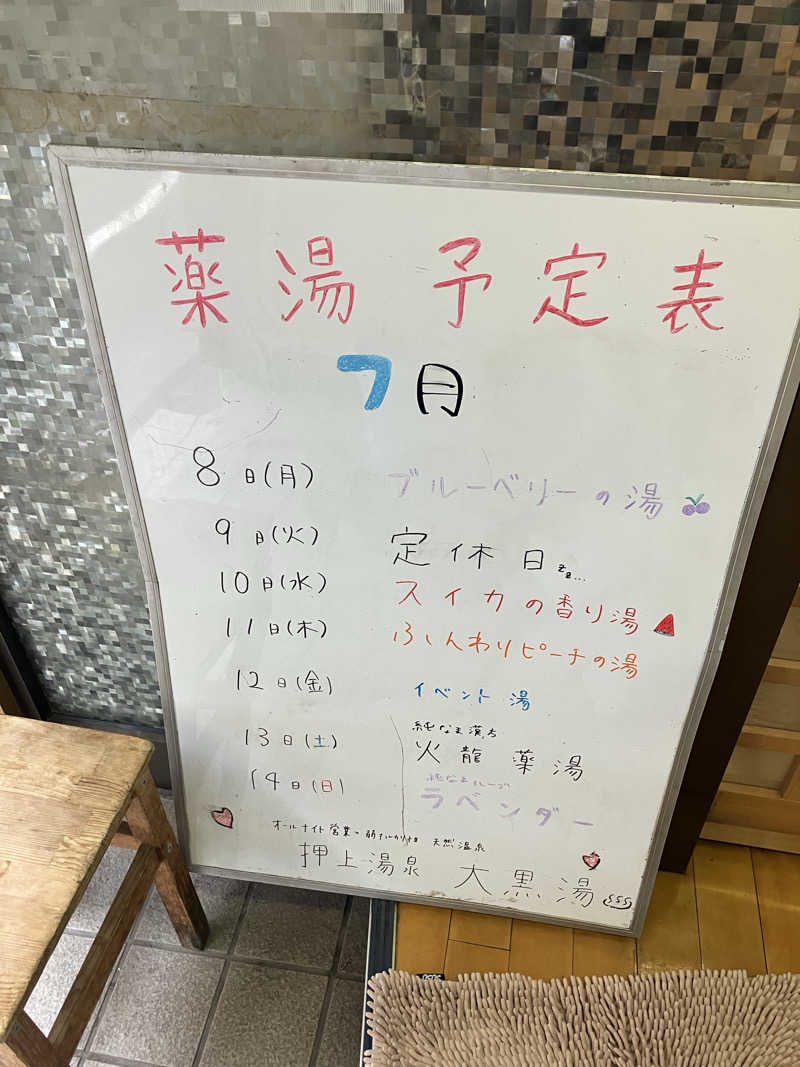 薬湯予定表
7月
8日(月) ブルーベリーの湯
9日(火) 定休日zz...
10日(水) スイカの香り湯
11日(木) ふんわりピーチの湯
12日(金) イベント湯
13日(土) 火龍 薬湯
14日(日) ラベンダー
オールナイト営業 天然温泉
押上温泉 大黒湯